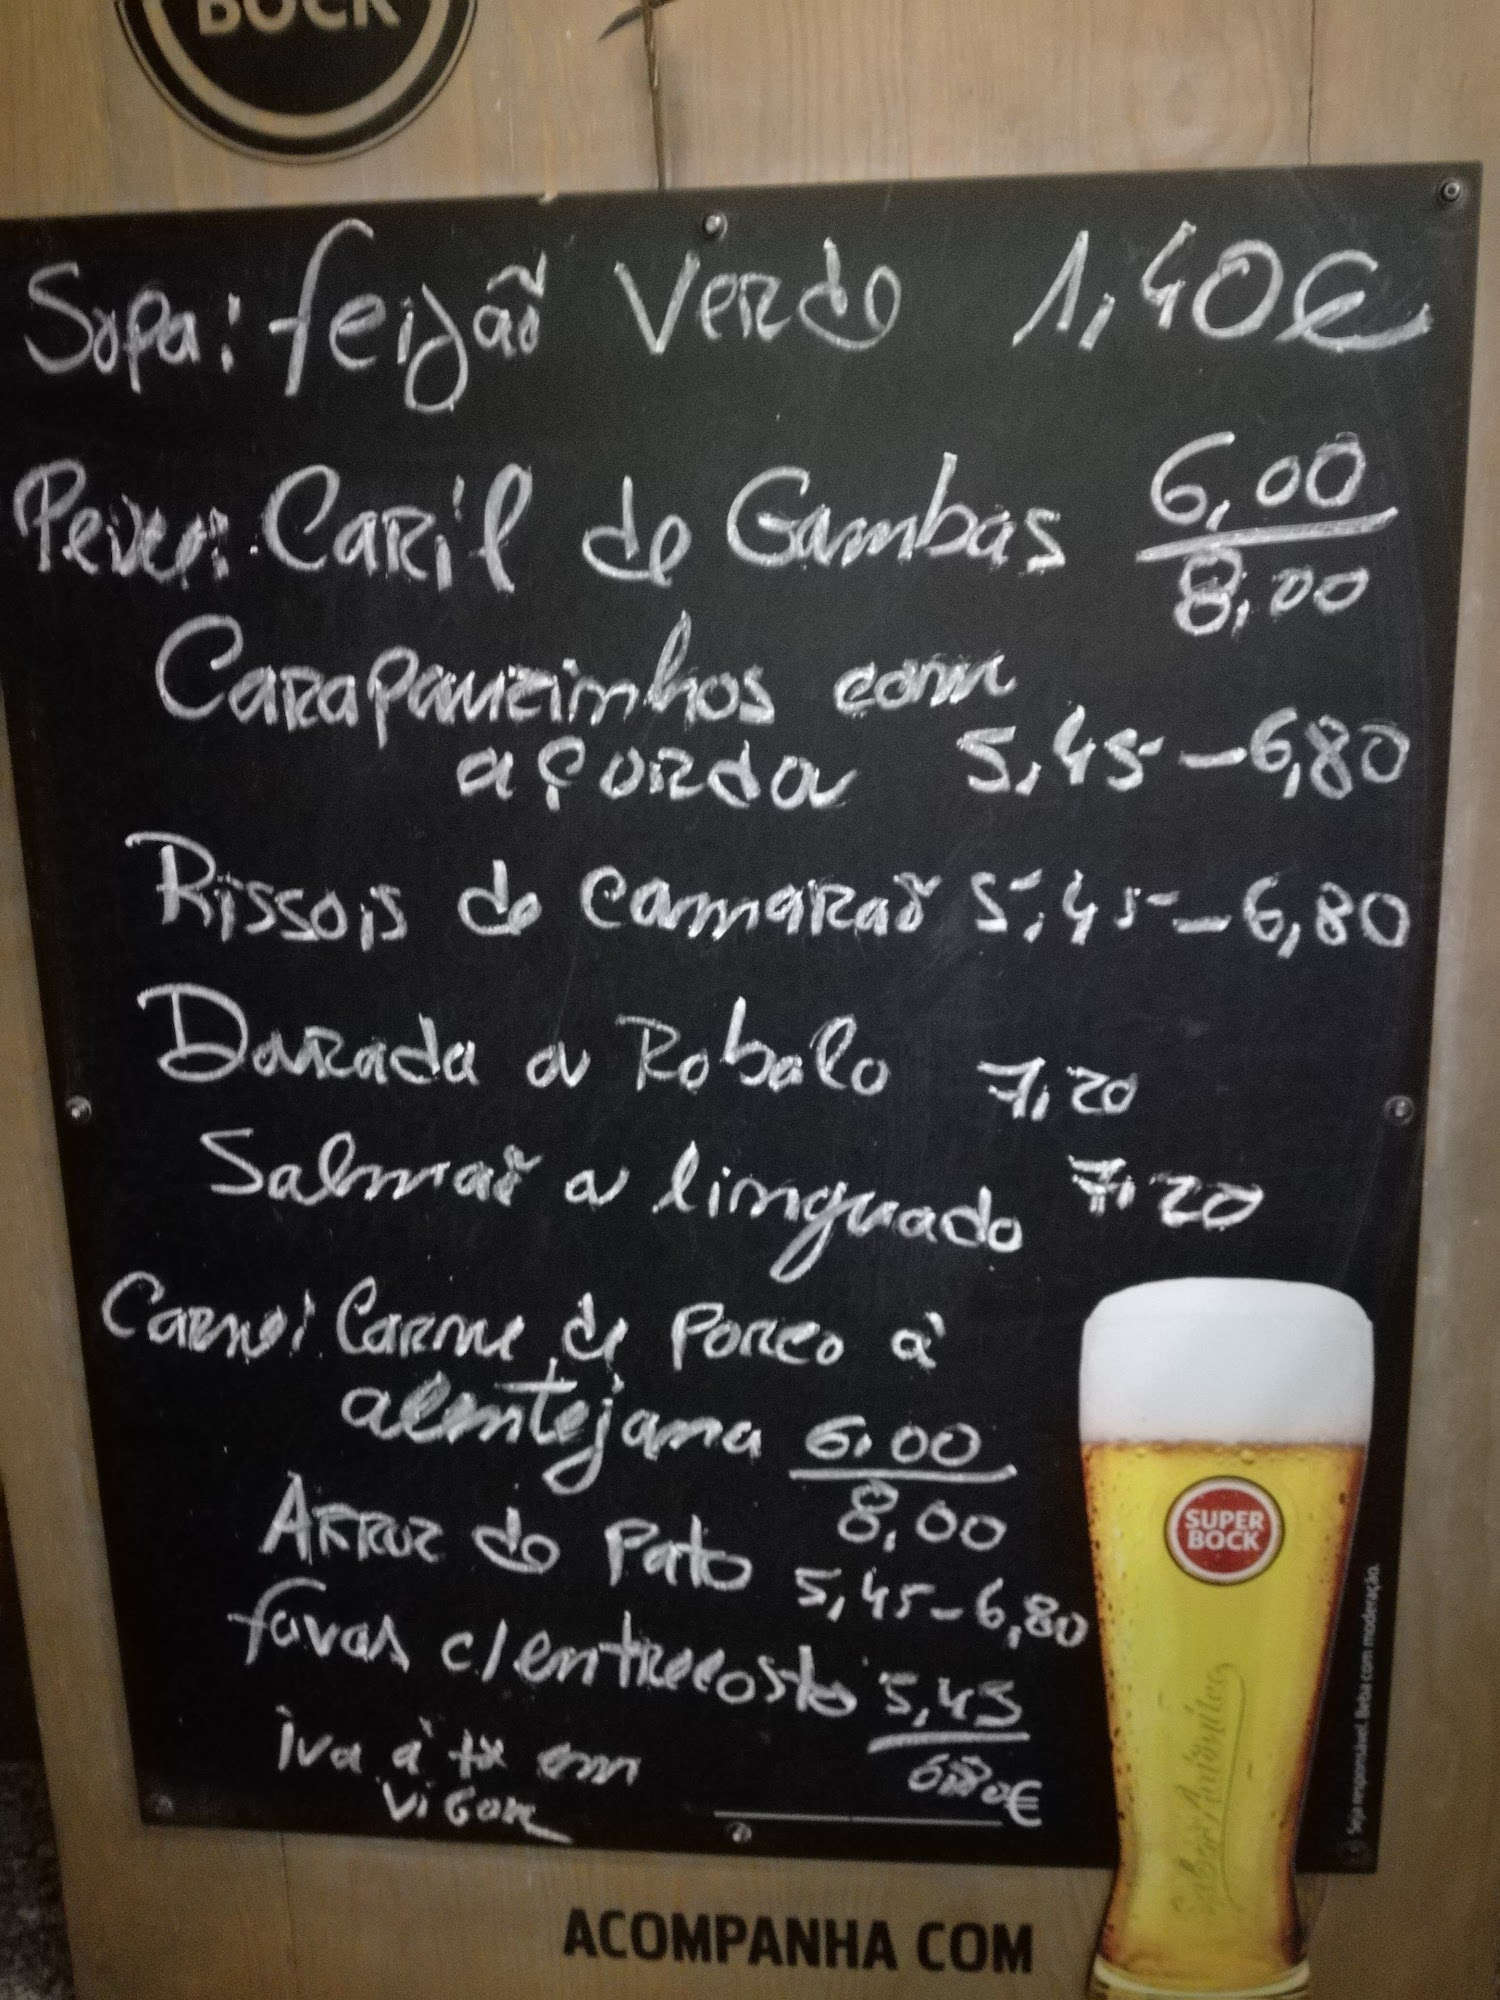 BOCK
Sopa: feijão Verde 1,40€
Peixe: Caril de Gambas 6,00
8,00
Carapauzinhos com
açorda 5,45 - 6,80
Rissois de camarão 5,45 - 6,80
Dourada ou Robalo 7,20
Salmão ou linguado 7,20
Carne: Carne de Porco à
alentejana 6,00
8,00
Arroz de Pato 5,45 - 6,80
favas c/entrecosto 5,45
6,80€
iva à tx em
vigor
SUPER
BOCK
Sabor Autêntico
Seja responsável. Beba com moderação.
ACOMPANHA COM